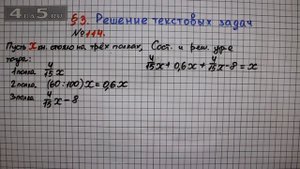 4/5.ru
§3. Решение текстовых задач
№ 114.
Пусть х кн стояло на трёх полках, Сост. и реш. ур-е
тогда:
4/15 х + 0,6х + 4/15 х - 8 = х
1 полка 4/15 х
2 полка (60:100) х = 0,6х
3 полка 4/15 х - 8